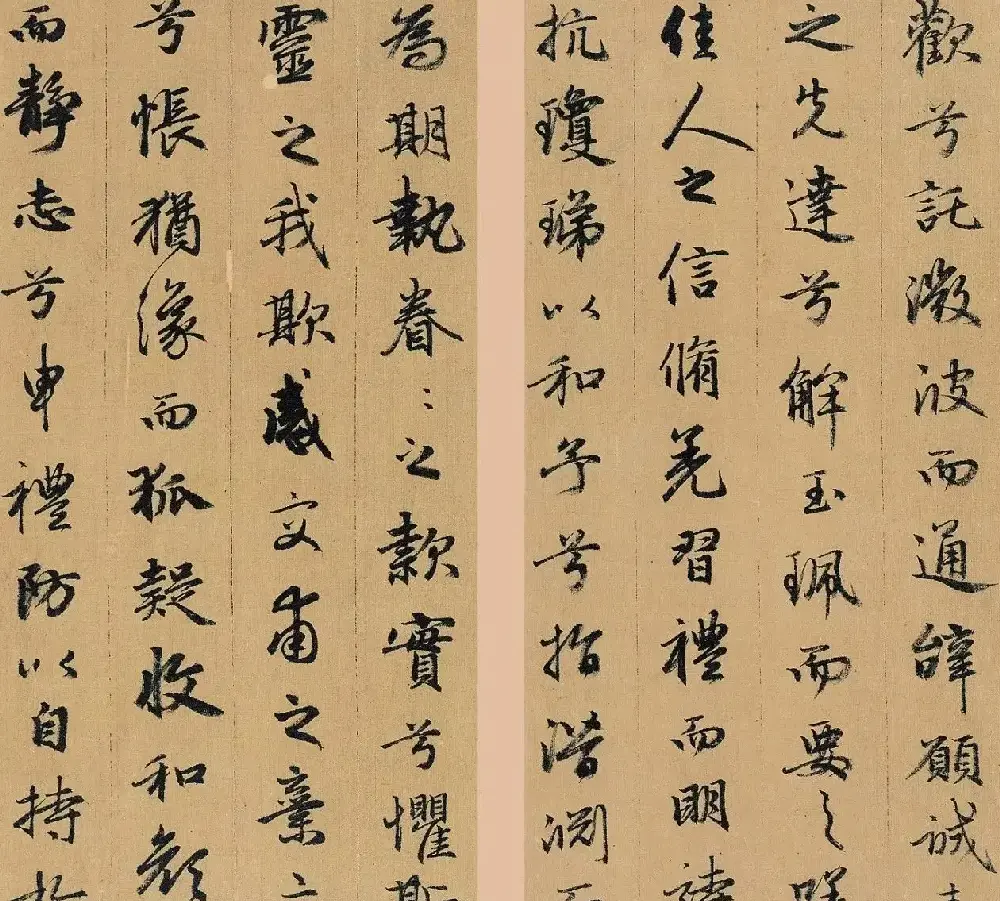 歡兮託微波而通辭願誠
之先達兮解玉珮而要之嗟
佳人之信脩羌習禮而明詩
抗瓊珶以和予兮指潛淵而
為期執眷〻之款實兮懼斯
靈之我欺感交甫之棄
兮悵猶豫而狐疑收和顏
而靜志兮申禮防以自持